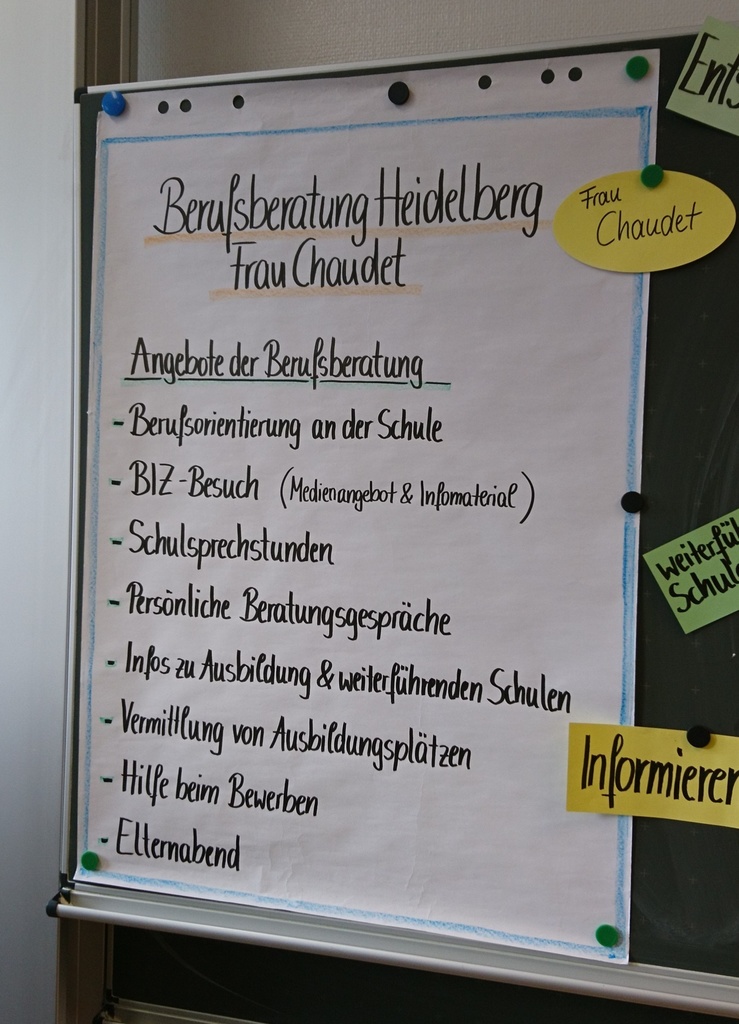 Berufsberatung Heidelberg
Frau Chaudet
Angebote der Berufsberatung
- Berufsorientierung an der Schule
- BIZ-Besuch (Medienangebot & Infomaterial)
- Schulsprechstunden
- Persönliche Beratungsgespräche
- Infos zu Ausbildung & weiterführenden Schulen
- Vermittlung von Ausbildungsplätzen
- Hilfe beim Bewerben
- Elternabend
Frau
Chaudet
Informieren